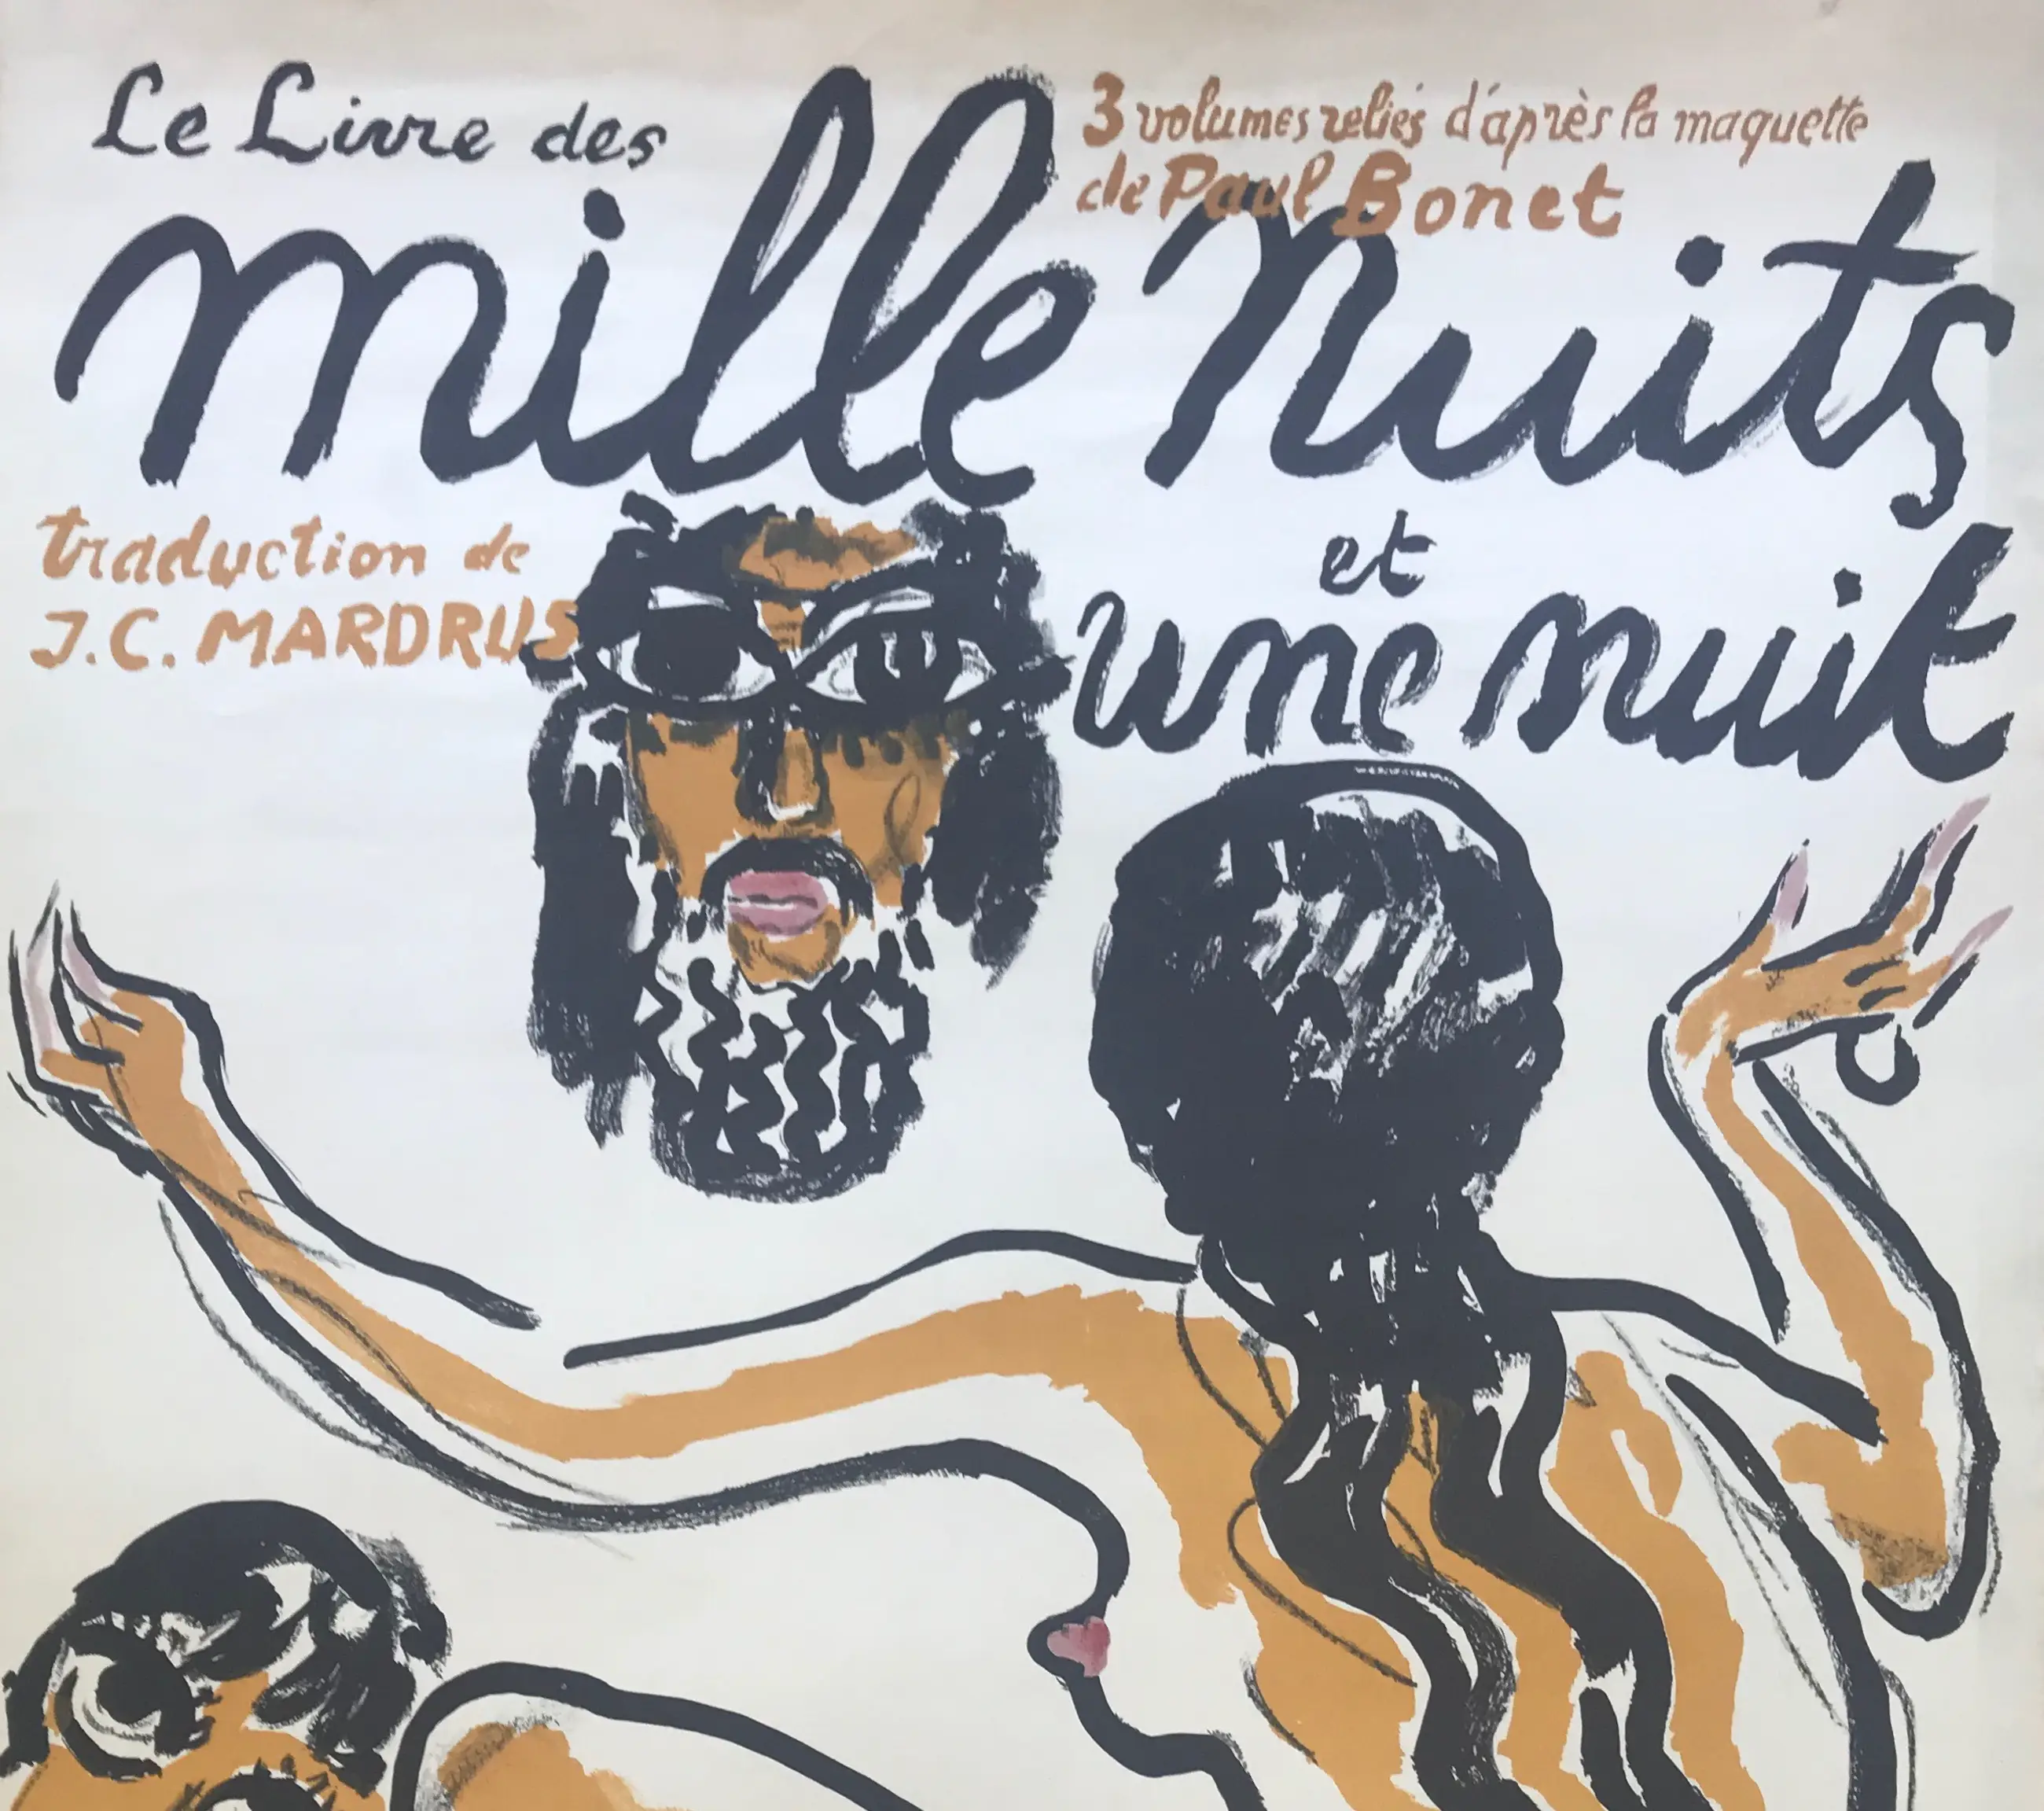 Le Livre des
mille nuits
et
une nuit
3 volumes reliés d'après la maquette
de Paul Bonet
traduction de
J.C. MARDRUS